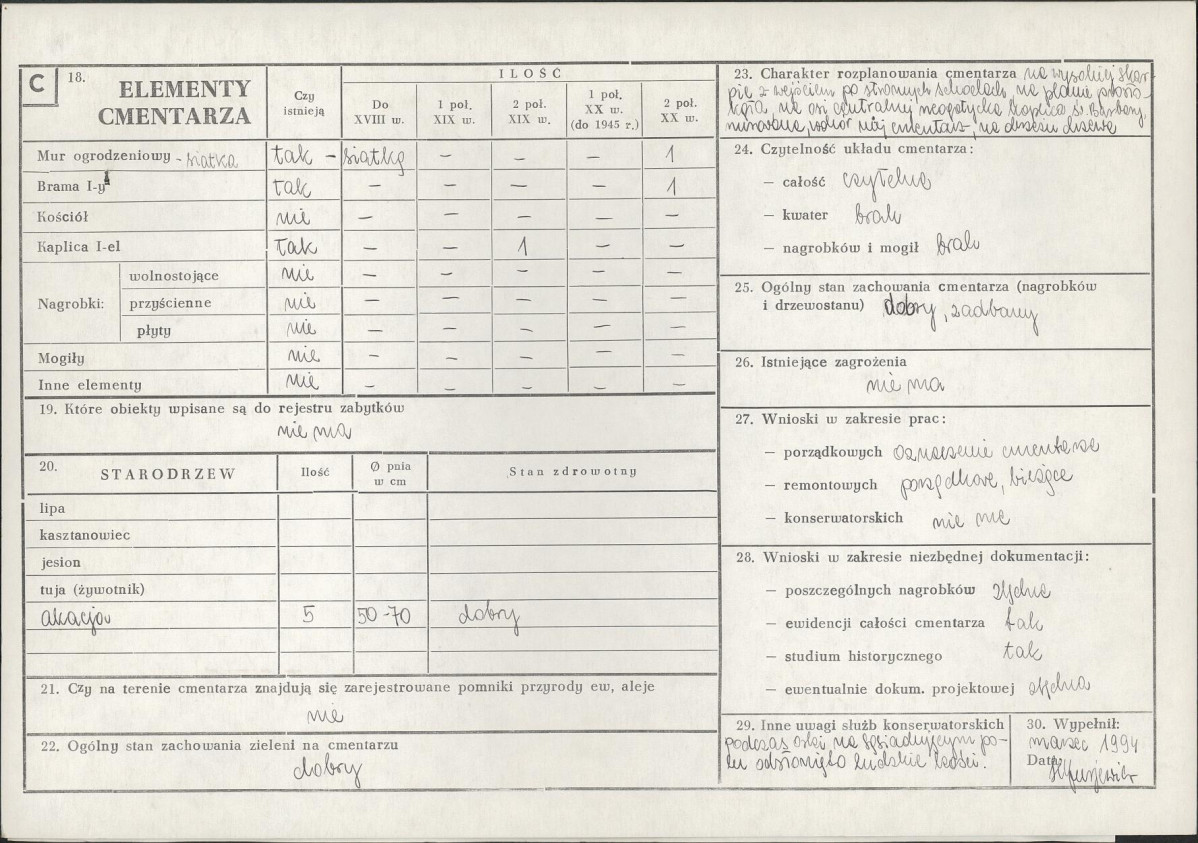 C 18. ELEMENTY CMENTARZA
Czy istnieją
ILOŚĆ
Do XVIII w.
1 poł. XIX w.
2 poł. XIX w.
1 poł. XX w. (do 1945 r.)
2 poł. XX w.
Mur ogrodzeniowy - siatka tak - siatkę — — — 1
Brama I-y tak — — — — 1
Kościół nie — — — — —
Kaplica I-el tak — — 1 — —
Nagrobki:
wolnostojące nie — — — — —
przyścienne nie — — — — —
płyty nie — — — — —
Mogiły nie — — — — —
Inne elementy nie — — — — —
19. Które obiekty wpisane są do rejestru zabytków
nie ma
20. STARODRZEW Ilość Ø pnia w cm Stan zdrowotny
lipa
kasztanowiec
jesion
tuja (żywotnik)
akacja 5 50-70 dobry
21. Czy na terenie cmentarza znajdują się zarejestrowane pomniki przyrody ew, aleje
nie
22. Ogólny stan zachowania zieleni na cmentarzu
dobry
23. Charakter rozplanowania cmentarza na wysokiej skar-
pie z wejściem po stromych schodach, na planie prosto-
kąta, na osi centralnej neogotycka kaplica św. Barbary,
murowana, wokół niej cmentarz, na
24. Czytelność układu cmentarza:
— całość czytelna
— kwater brak
— nagrobków i mogił brak
25. Ogólny stan zachowania cmentarza (nagrobków
i drzewostanu) dobry, zadbany
26. Istniejące zagrożenia
nie ma
27. Wnioski w zakresie prac:
— porządkowych oznaczenie cmentarza
— remontowych porządkowe, bieżące
— konserwatorskich nie ma
28. Wnioski w zakresie niezbędnej dokumentacji:
— poszczególnych nagrobków zbędna
— ewidencji całości cmentarza tak
— studium historycznego tak
— ewentualnie dokum. projektowej zbędna
29. Inne uwagi służb konserwatorskich
podczas orki na sąsiadującym po-
lu odsłonięto ludzkie kości.
30. Wypełnił:
marzec 1994
Data: